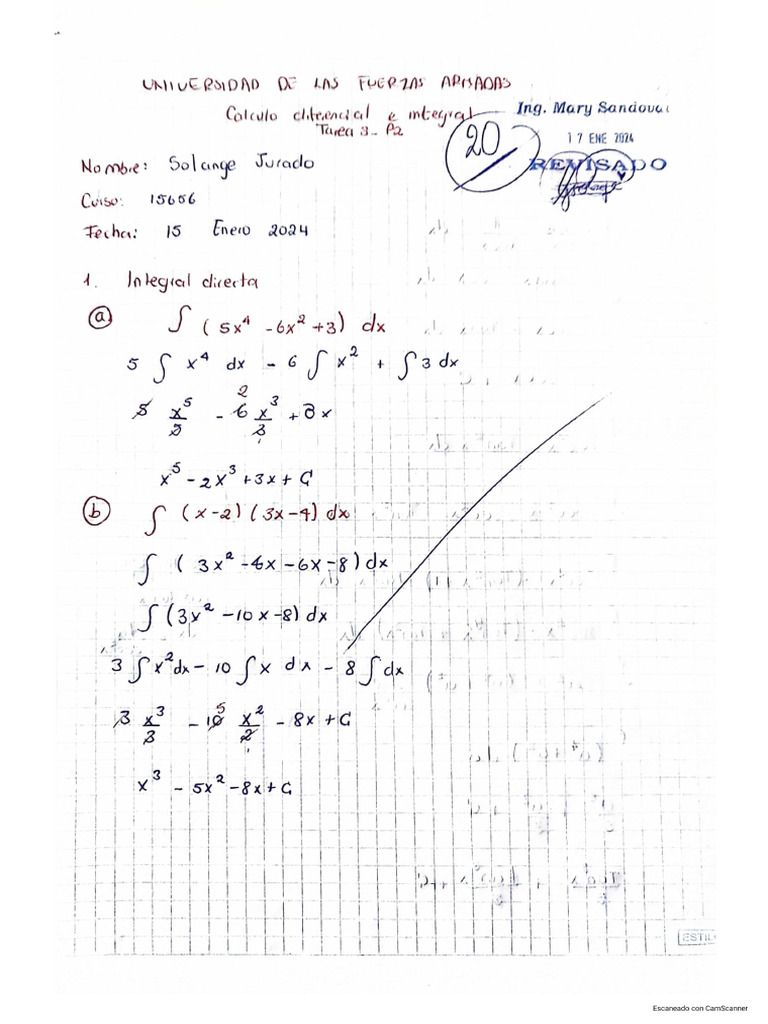 UNIVERSIDAD DE LAS FUERZAS ARMADAS
Calculo diferencial e integral
Tarea 3 - P2
Ing. Mary Sandoval
17 ENE 2024
REVISADO
20
Nombre: Solange Jurado
Curso: 15656
Fecha: 15 Enero 2024
1. Integral directa
a) ∫ (5x⁴ - 6x² + 3) dx
5 ∫ x⁴ dx - 6 ∫ x² + ∫ 3 dx
5 x⁵/5 - 6 2 x³/3 + 3x
x⁵ - 2x³ + 3x + C
b) ∫ (x-2) (3x-4) dx
∫ (3x² - 4x - 6x - 8) dx
∫ (3x² - 10x - 8) dx
3 ∫ x² dx - 10 ∫ x dx - 8 ∫ dx
3 x³/3 - 10 5 x²/2 - 8x + C
x³ - 5x² - 8x + C
ESTIL
Escaneado con CamScanner